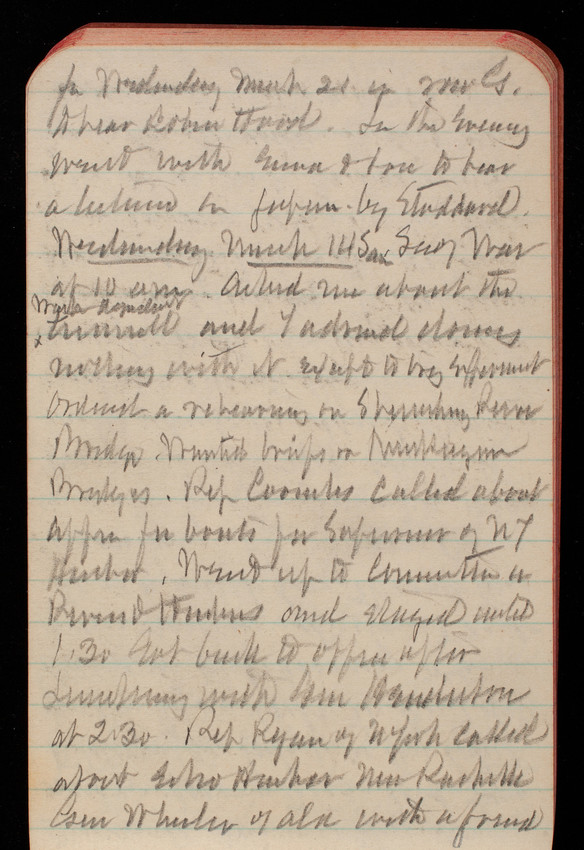 for Wednesday March 21 in
to hear Robin Hood. In the Evening
went with Emma & to hear
a lecture on Japan by Stoddard.
Wednesday March 14 Saw Secy War
at 10 am. Asked me about the
and I advised doing
nothing with it except to
Ordered a rehearing on River
Bridge Wanted briefs on
Bridges. Rep Coombs called about
appn for boats for Supervisor of NY
Harbor. Went up to Committee on
Rivers & Harbors and stayed until
1.30 Got back to office after
Lunching with Gen Henderson
at 2.30. Rep Ryan of N York called
about Echo Harbor New Rochelle
Gen Wheeler of Ala with a friend